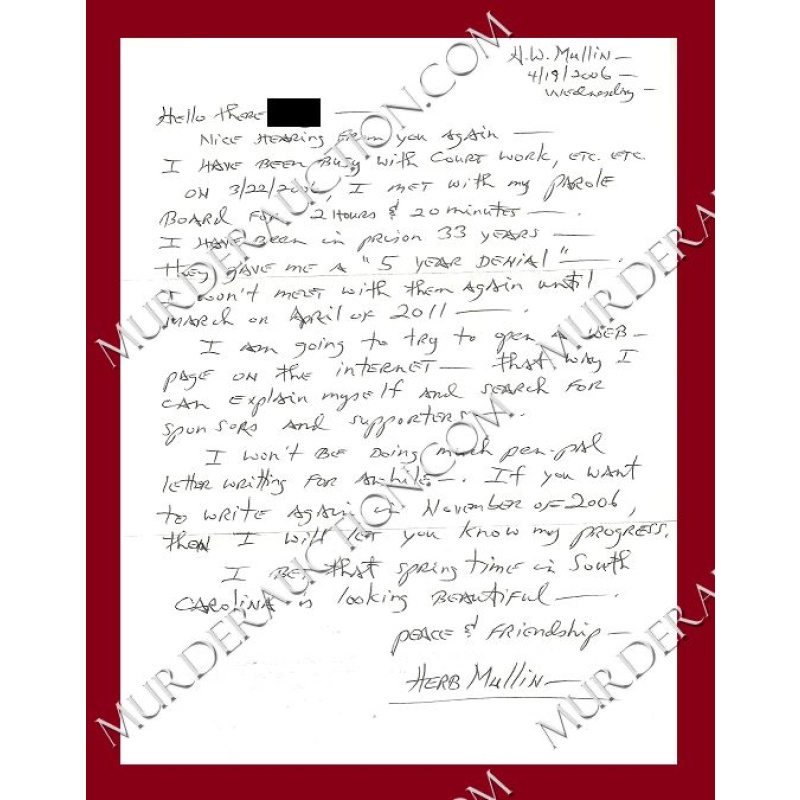 H.W. Mullin —
4/19/2006 —
Wednesday —
Hello there —
Nice Hearing From you Again —
I HAVE BEEN Busy with COURT WORK, ETC. ETC.
ON 3/22/2006, I MET WITH my PAROLE
BOARD FOR 2 Hours & 20 minutes — .
I HAVE BEEN in prison 33 years —
they gave me A "5 YEAR DENIAL" — .
I won't meet with them Again until
MARCH or April of 2011 — .
I Am going to try to open A WEB–
page on the internet — that way I
can explain myself and search for
sponsors and supporters — .
I won't BE Doing much pen-pal
letter writting for Awhile — . If you want
to write Again in November of 2006,
then I will let you know my progress.
I BET that spring time in South
CAROLINA is looking BEAUTIFUL — .
peace & Friendship —
HERB Mullin —
MURDERAUCTION.COM
MURDERAUCTION.COM
MURDERAUCTION.COM